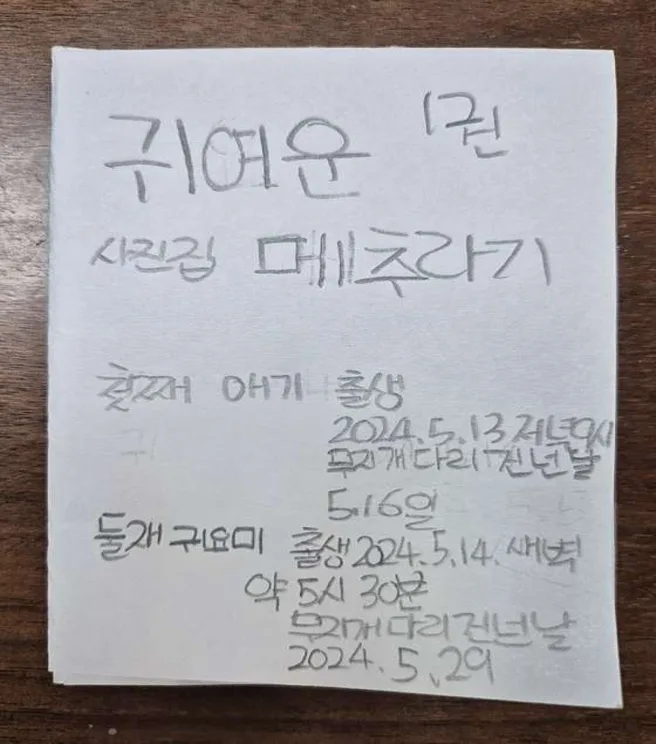 귀여운 1권
사진집 메추라기
첫째 애기 출생
2024.5.13 저녁9시
무지개다리 건넌날
5.16일
둘재 귀요미 출생 2024.5.14. 새벽
약 5시 30분
무지개다리 건넌날
2024.5.29